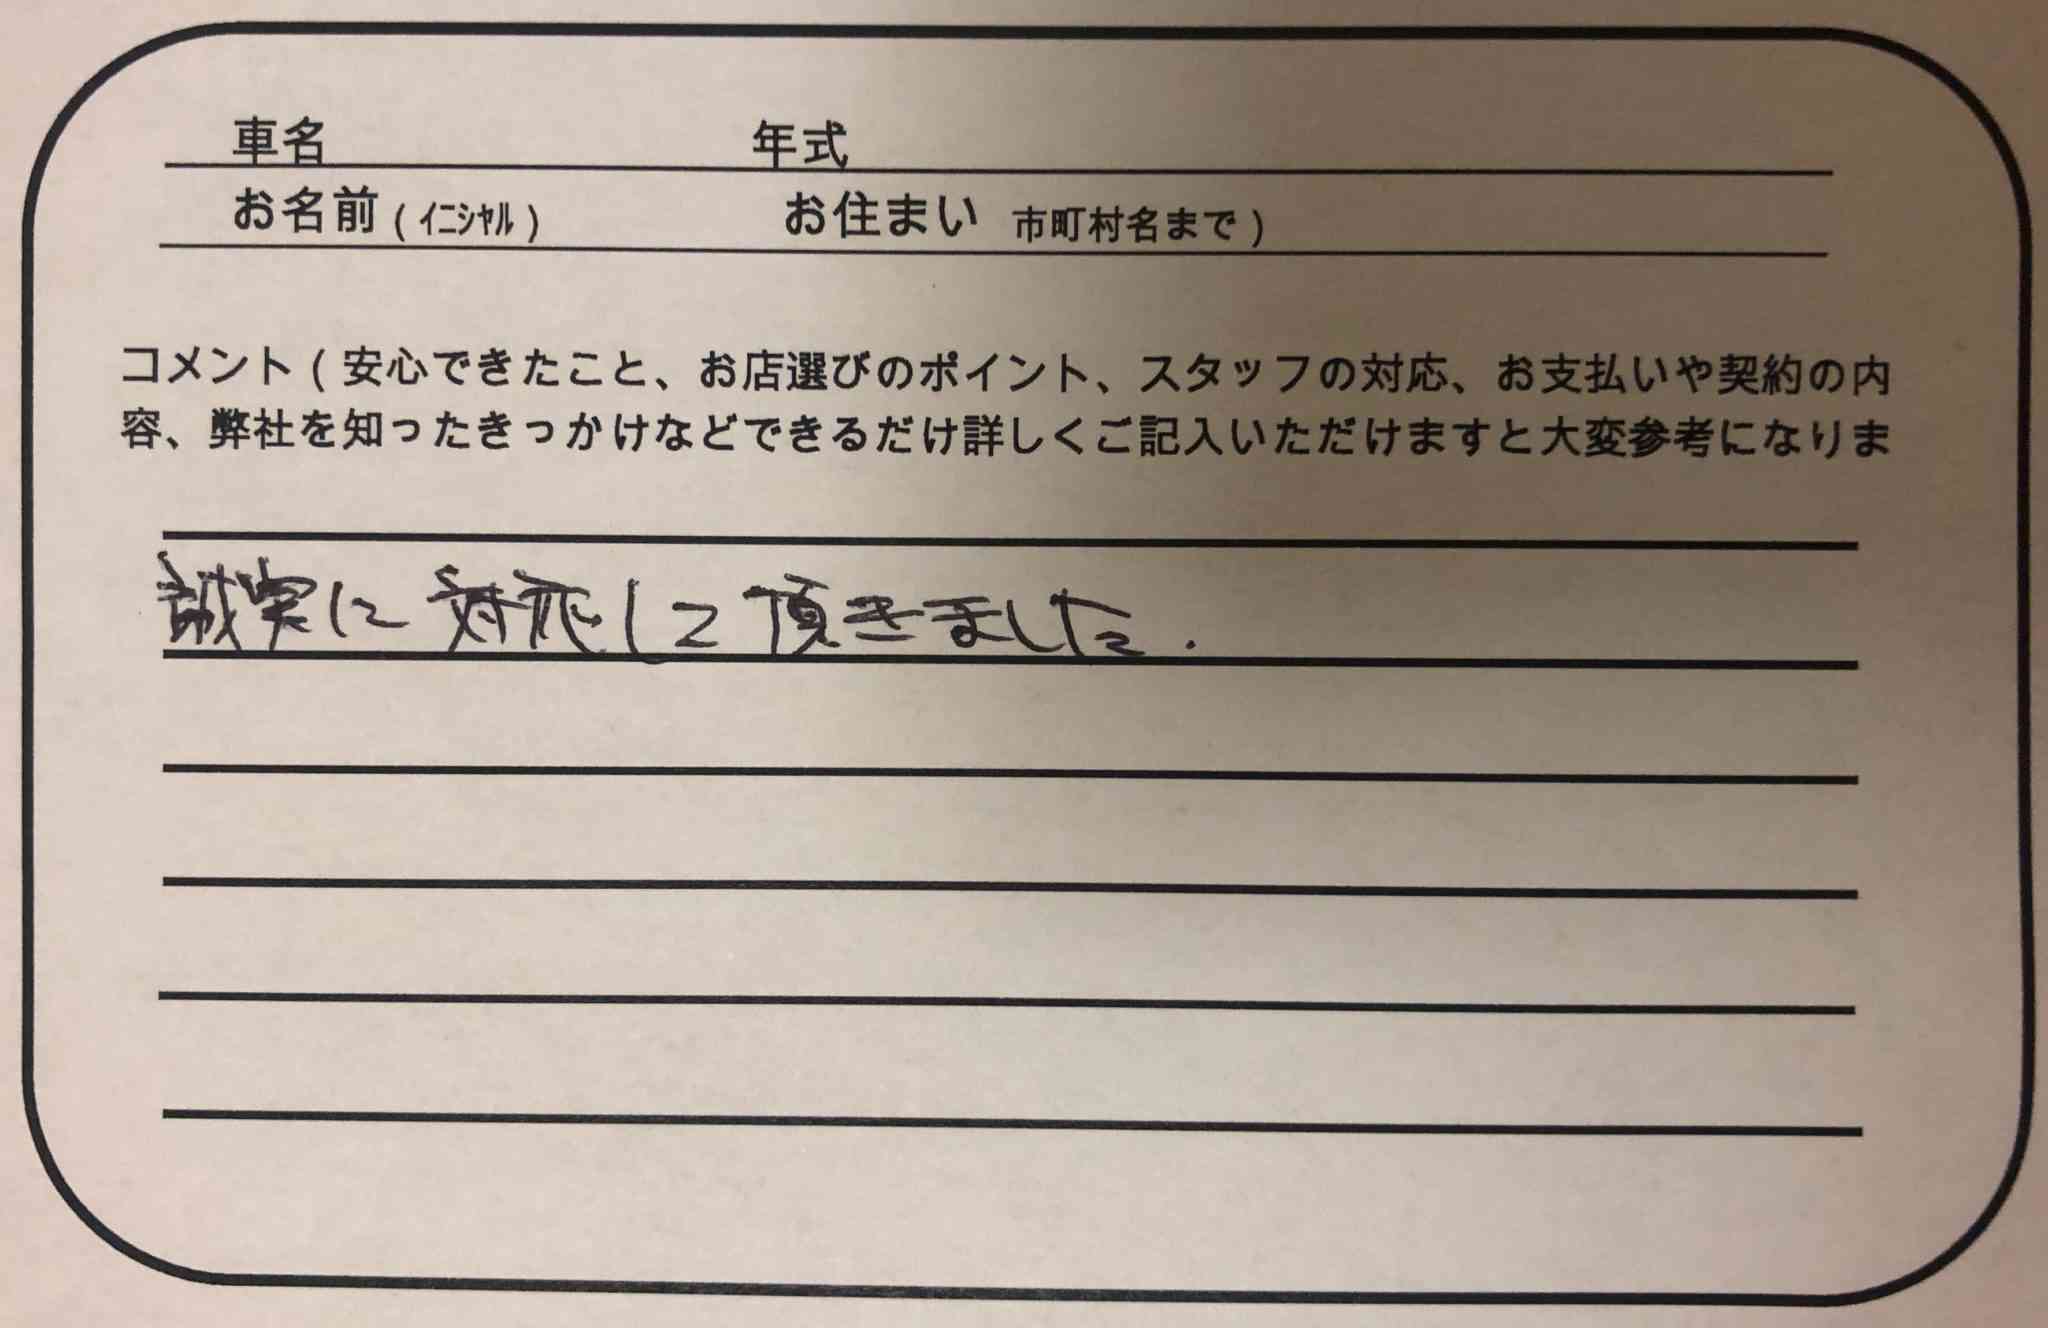 車名 年式
お名前(イニシャル) お住まい 市町村名まで)
コメント(安心できたこと、お店選びのポイント、スタッフの対応、お支払いや契約の内
容、弊社を知ったきっかけなどできるだけ詳しくご記入いただけますと大変参考になりま
誠実に対応して頂きました.